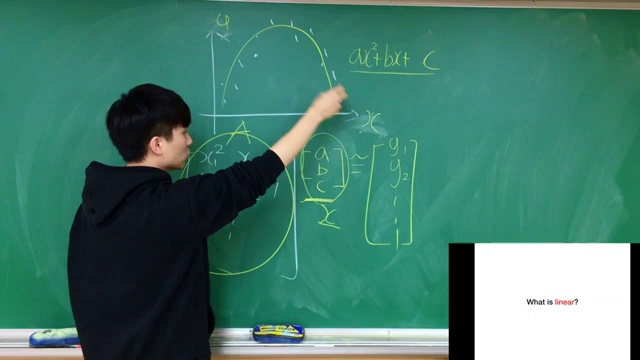 y
ax²+bx+ c
x
A
x₁² x
a
b
c
≈
y₁
y₂
x
What is linear?